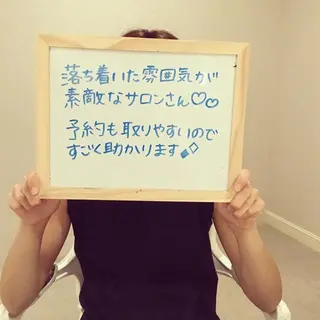 落ち着いた雰囲気が
素敵なサロンさん♡♡
予約も取りやすいので
すごく助かります